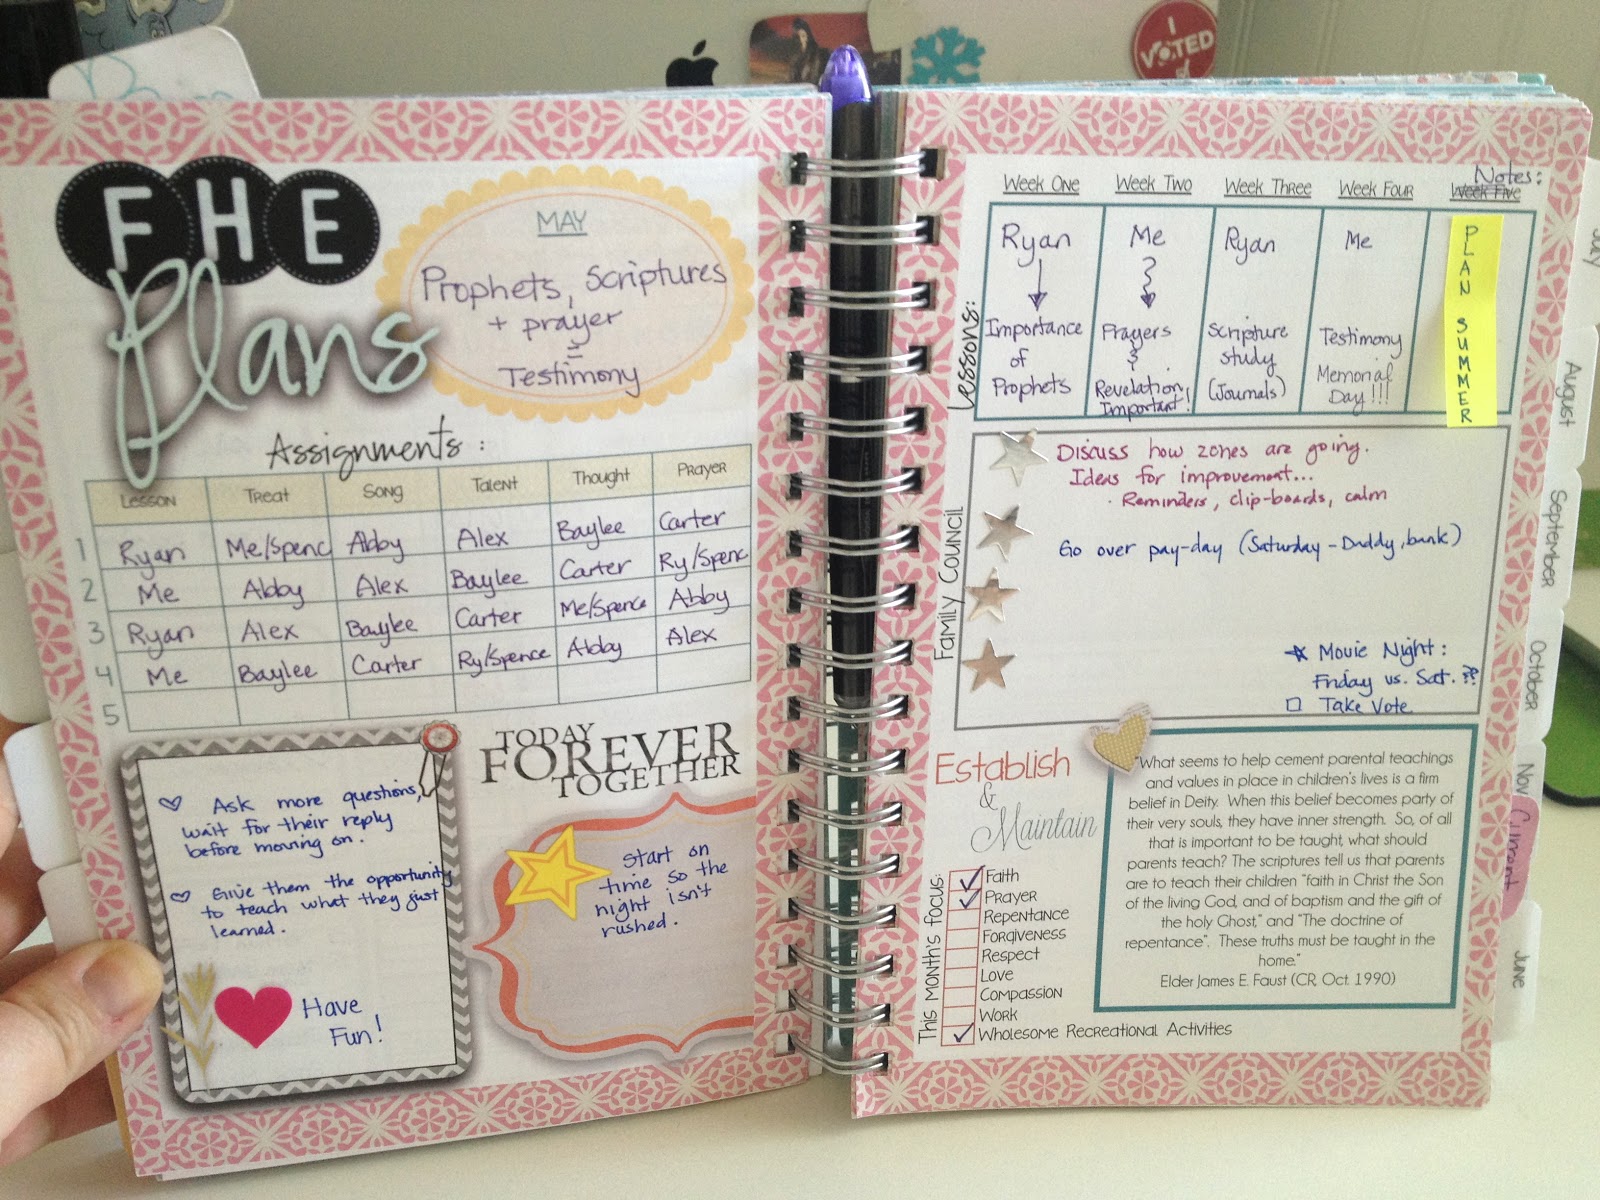 I
VOTED
FHE
Plans
MAY
Prophets, Scriptures
+ prayer
=
Testimony
Assignments:
Lesson Treat Song Talent Thought Prayer
1 Ryan Me/Spenc Abby Alex Baylee Carter
2 Me Abby Alex Baylee Carter Ry/Spenc
3 Ryan Alex Baylee Carter Me/Spence Abby
4 Me Baylee Carter Ry/Spence Abby Alex
5
Ask more questions,
wait for their reply
before moving on.
Give them the opportunity
to teach what they just
learned.
Have
Fun!
TODAY
FOREVER
TOGETHER
Start on
time so the
night isn't
rushed.
Notes:
Week One Week Two Week Three Week Four Week Five
Lessons:
Ryan
Importance
of
Prophets
Me
Prayers
&
Revelation,
Important!
Ryan
Scripture
study
(Journals)
Me
Testimony
Memorial
Day!!!
PLAN SUMMER
Family Council
Discuss how zones are going.
Ideas for improvement...
· Reminders, clip-boards, calm
Go over pay-day (Saturday - Daddy, bank)
Movie Night:
Friday vs. Sat. ??
Take Vote
Establish
&
Maintain
This month's focus:
Faith
Prayer
Repentance
Forgiveness
Respect
Love
Compassion
Work
Wholesome Recreational Activities
"What seems to help cement parental teachings
and values in place in children's lives is a firm
belief in Deity. When this belief becomes party of
their very souls, they have inner strength. So, of all
that is important to be taught, what should
parents teach? The scriptures tell us that parents
are to teach their children "faith in Christ the Son
of the living God, and of baptism and the gift of
the holy Ghost," and "The doctrine of
repentance". These truths must be taught in the
home."
Elder James E. Faust (CR, Oct. 1990)
July
August
September
October
Nov
Current
June